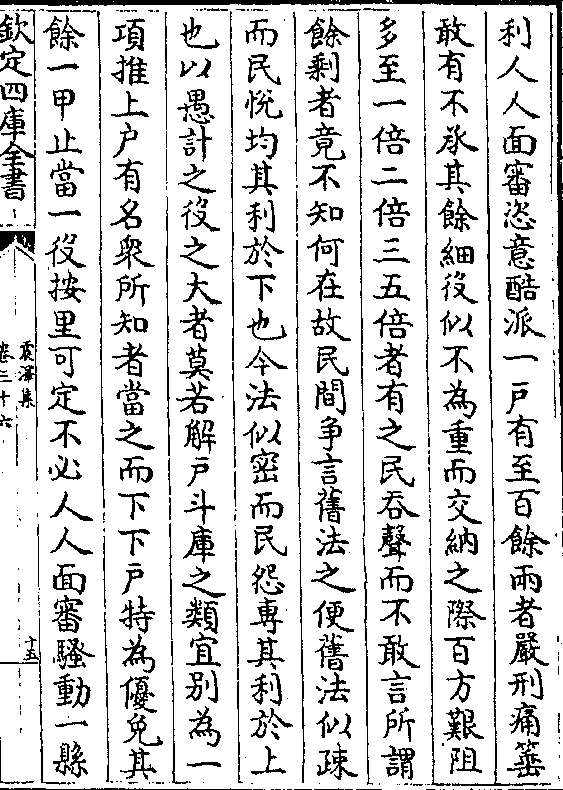 利人人面審恣意酷派一戸有至百餘兩者嚴刑痛箠
敢有不承其餘細役似不為重而交納之際百方艱阻
多至一倍二倍三五倍者有之民吞聲而不敢言所謂
餘剩者竟不知何在故民間争言舊法之便舊法似疎
而民悅均其利於下也今法似密而民怨専其利於上
也以愚計之役之大者莫若解戸斗庫之類宜别為一
項推上户有名衆所知者當之而下下戸特為優免其
餘一甲止當一役按里可定不必人人面審騷動一縣
欽定四庫全書
震澤集
卷三十六
十五